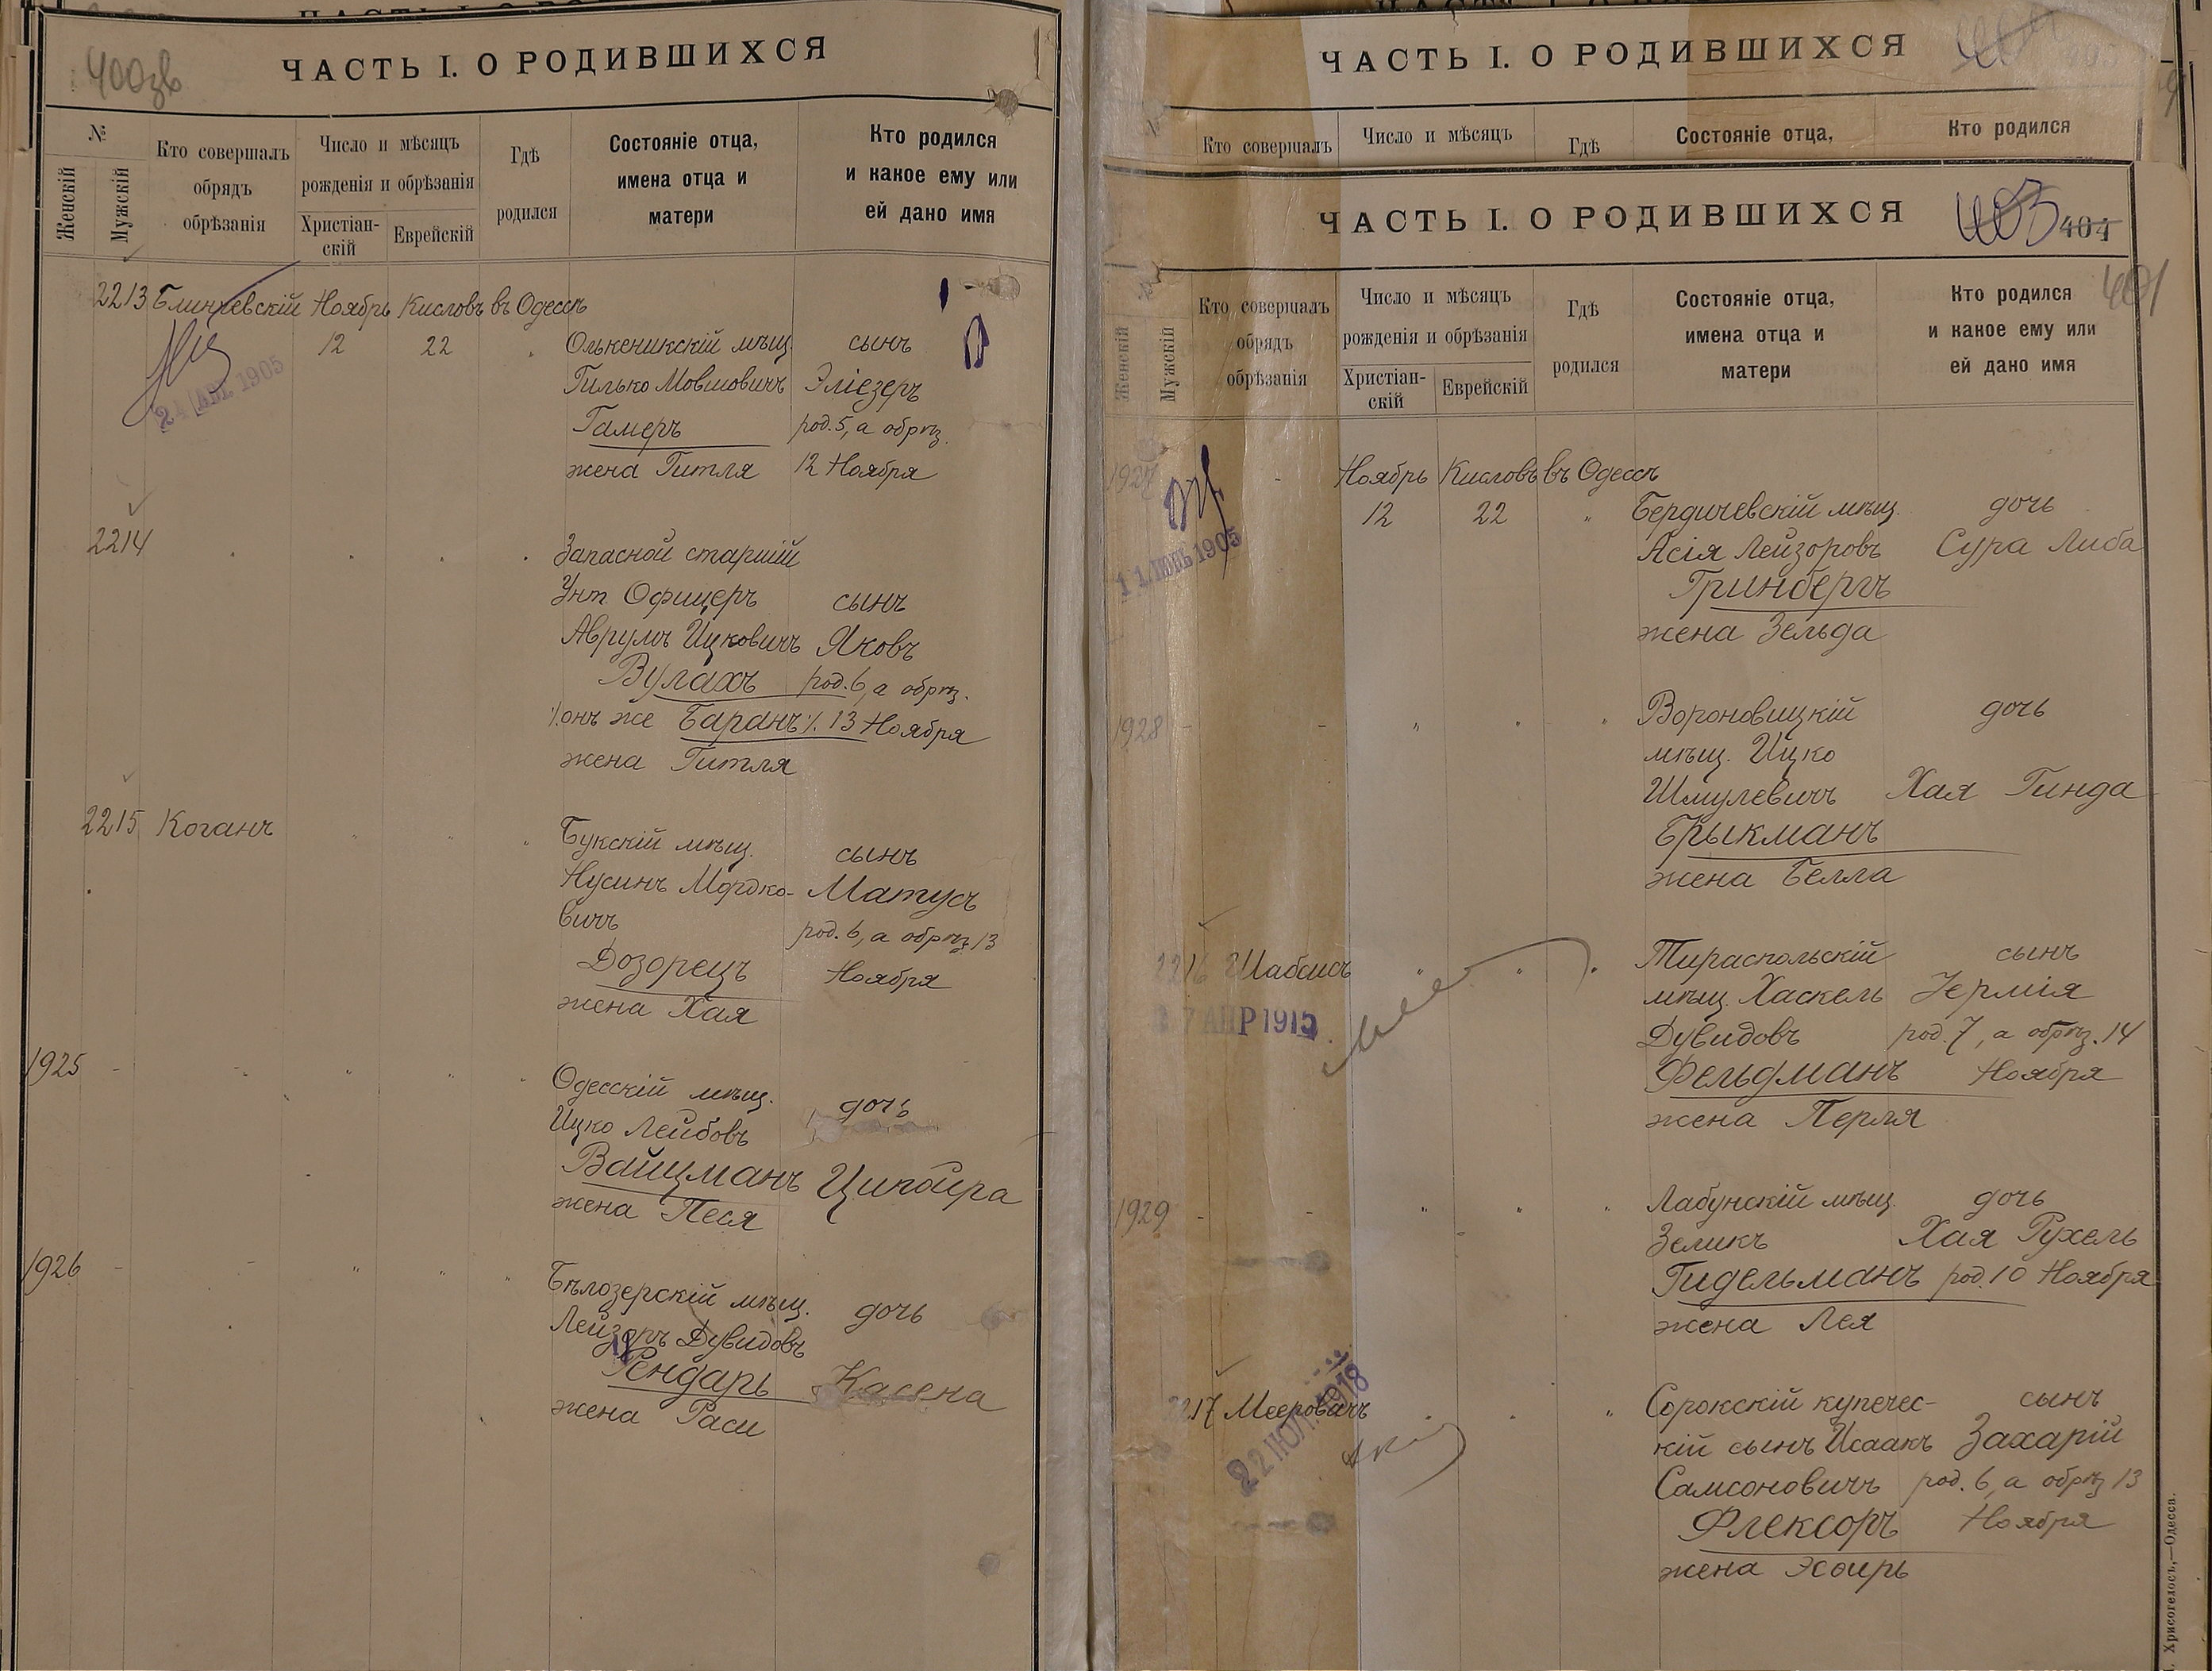 400зв
ЧАСТЬ I. О РОДИВШИХСЯ
№
Женскій
Мужскій
Кто совершалъ
обрядъ
обрѣзанія
Число и мѣсяцъ
рожденія и обрѣзанія
Христіан-
скій
Еврейскій
Гдѣ
родился
Состояніе отца,
имена отца и
матери
Кто родился
и какое ему или
ей дано имя
2213 Блинчевскій Ноябрь Кисловъ въ Одессѣ
12 22 „ Олькеникскій мѣщ. сынъ
Гилько Мовшовичъ Эліезеръ
Гамеръ род. 5, а обрѣз.
жена Гитля 12 Ноября
1905
2214 Запасной старшій
Унт. Офицеръ сынъ
Аврумъ Ицковичъ Яковъ
Вулахъ род. 6, а обрѣз.
онъ же Баранъ 13 Ноября
жена Гитля
2215 Коганъ „ „ „ Букскій мѣщ. сынъ
Нусинъ Мордко- Матусъ
вичъ род. 6, а обрѣз 13
Дозорецъ Ноября
жена Хая
1925 - - „ „ „ Одесскій мѣщ. дочь
Ицко Лейбовъ
Вайцманъ Ципойра
жена Песя
1926 - - „ „ „ Бѣлозерскій мѣщ. дочь
Лейзоръ Дувидовъ
Рендарь Касена
жена Раси
ЧАСТЬ I. О РОДИВШИХСЯ
Кто совершалъ
Число и мѣсяцъ
Гдѣ
Состояніе отца,
Кто родился
ЧАСТЬ I. О РОДИВШИХСЯ
403 404
401
Женскій
Мужскій
Кто совершалъ
обрядъ
обрѣзанія
Число и мѣсяцъ
рожденія и обрѣзанія
Христіан-
скій
Еврейскій
Гдѣ
родился
Состояніе отца,
имена отца и
матери
Кто родился
и какое ему или
ей дано имя
1927 - Ноябрь Кисловъ въ Одессѣ
12 22 „ Бердичевскій мѣщ. дочь
Асія Лейзоровъ Сура Либа
Гринбергъ
жена Зельда
11 1905
1928 - - „ „ „ Вороновицкій дочь
мѣщ. Ицко
Шмулевичъ Хая Гинда
Брыкманъ
жена Белла
2216 Шабсисъ „ „ „ Тираспольскій сынъ
мѣщ. Хаскель Іермія
Дувидовъ род. 7, а обрѣз. 14
Фельдманъ Ноября
жена Перля
27 АПР 1915
1929 - - „ „ „ Лабунскій мѣщ. дочь
Зеликъ Хая Рухель
Гидельманъ род. 10 Ноября
жена Лея
2217 Мееровичъ „ Сорокскій купечес- сынъ
кій сынъ Исаакъ Захарій
Самсоновичъ род. 6, а обрѣз 13
Флексоръ Ноября
жена Эсѳирь
22 ІЮЛ. 1918
Хрисогелосъ,—Одесса.